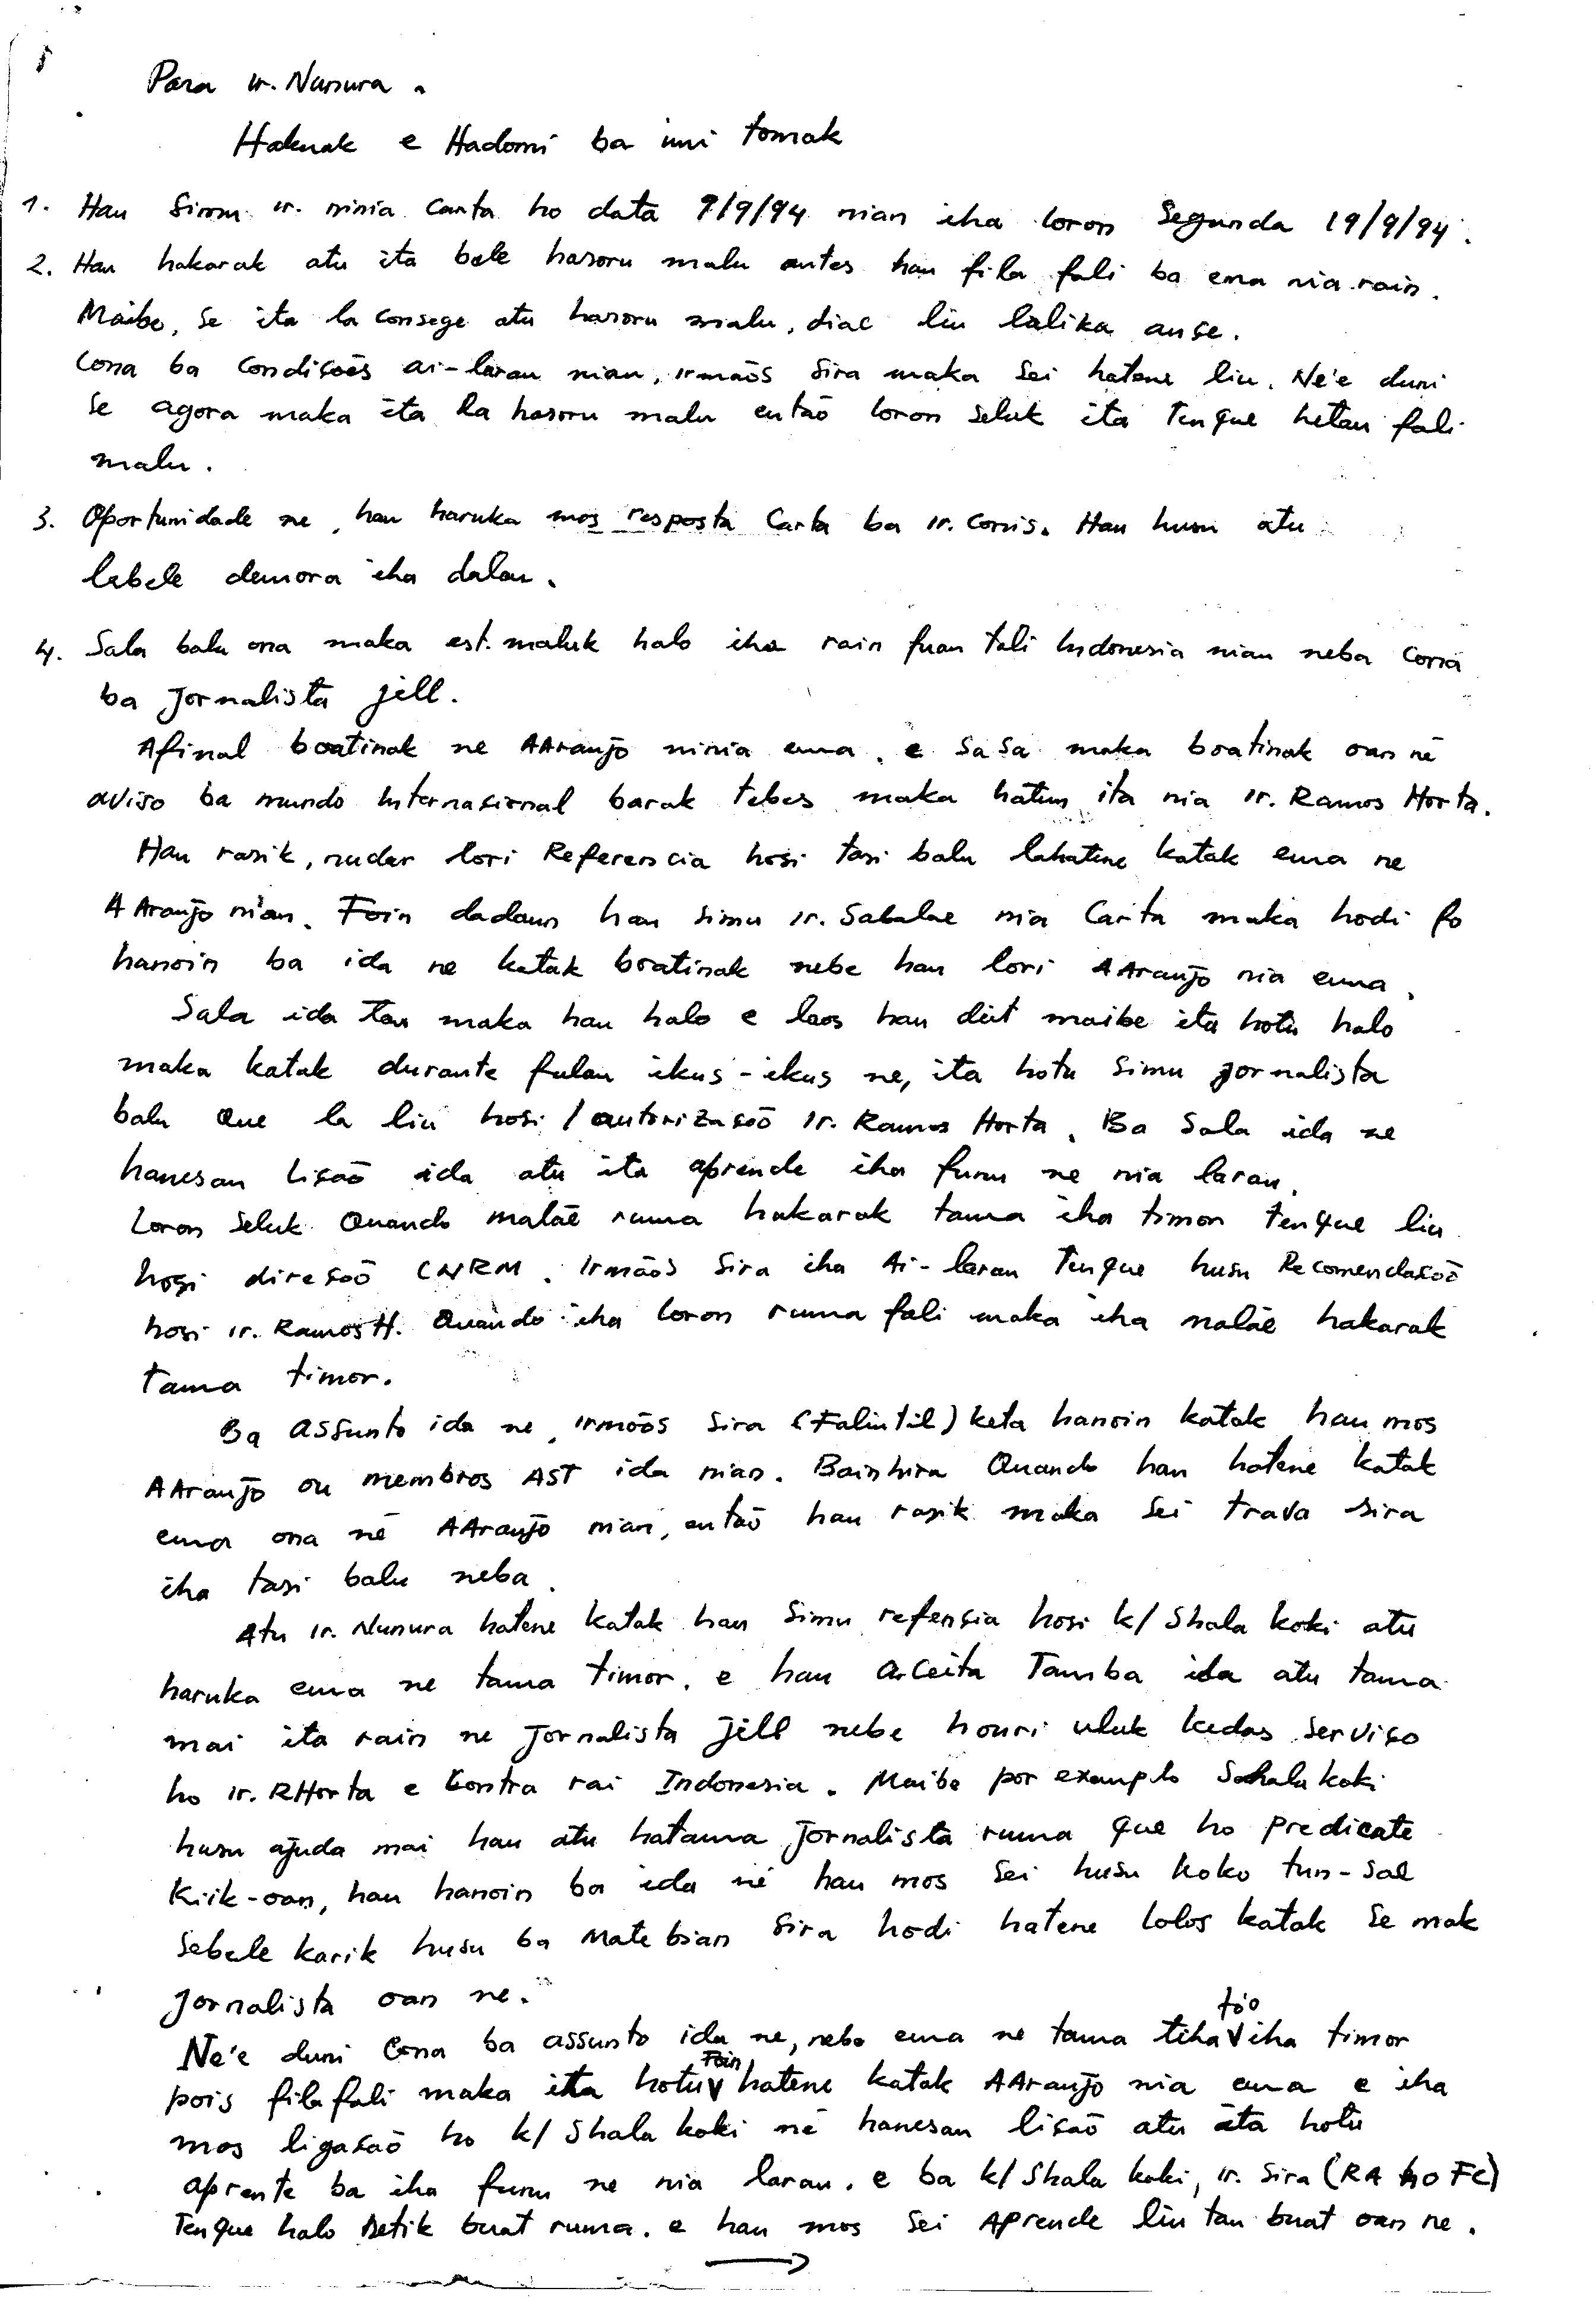 Para ir. Nunura.
Hakuak e Hadomi ba imi tomak
1. Hau Simu ir. ninia Carta ho data 9/9/94 nian iha loron Segunda 19/9/94.
2. Hau hakarak atu ita bele hasoru malu antes hau fila fali ba ema nia rain.
Maibe, se ita la consege atu hasoru malu, diac liu lalika anse.
Cona ba Condisoēs ai-laran nian, irmaõs Sira maka Sei hatene liu. Ne'e duni
Se agora maka ita la hasoru malu entaõ loron Seluk ita Tenque hetan fali
malu.
3. Oportunidade ne, hau haruka mos resposta Carta ba ir. Conis. Hau husu atu
labele demora iha dalan.
4. Sala balu ona maka est. maluk halo iha rain fuan tali Indonesia nian neba Cona
ba Jornalista jill.
Afinal boatinak ne AAraujo ninia ema. e SaSa maka boatinak oan né
aviso ba mundo Internasional barak tebes maka hatun ita nia ir. Ramos Horta.
Hau rasik, nudar lori Referencia hosi tasi balu lahatene katak ema ne
AAraujo nian. Foin dadaun hau simu ir. Sabalae nia Carta maka hodi fo
hanoin ba ida ne katak boatinak nebe hau lori AAraujo nia ema.
Sala ida tan maka hau halo e laos hau deit maibe ita hotu halo
maka katak durante fulan ikus-ikus ne, ita hotu Simu jornalista
balu Que la liu hosi / autorizasaõ ir. Ramos Horta. Ba Sala ida ne
hanesan lisaõ ida atu ita aprende iha funu ne nia laran.
Loron Seluk Quando malaē ruma hakarak tama iha timor tenque liu
hosi diresaõ CNRM. Irmaõs Sira iha Ai-laran Tenque husu Recomendasaõ
hosi ir. Ramos H. Quando iha loron ruma fali maka iha malaē hakarak
Tama timor.
Ba assunto ida ne, irmaõs Sira (Falintil) keta hanoin katak hau mos
AAraujo ou membros AST ida nian. Bainhira Quando hau hatene katak
ema ona né AAraujo nian, entaõ hau rasik maka Sei trava sira
iha tasi balu neba.
Atu ir. Nunura hatene katak hau Simu refensia hosi k/ Shala koki atu
haruka ema ne tama timor. e hau aceita Tamba ida atu tama
mai ita rain ne Jornalista jill nebe houri uluk kedas serviso
ho ir. RHorta e Contra rai Indonesia. Maibe por examplo Sahala koki
husu ajuda mai hau atu hatama Jornalista ruma que ho predicate
Kiik-oan, hau hanoin ba ida né hau mos Sei husu koko tun-sae
Sebele karik husu ba Mate bian Sira hodi hatene lolos katak Se mak
Jornalista oan ne.
Ne'e duni Cona ba assunto ida ne, nebe ema ne tama tiha to'o iha timor
pois fila fali maka ita hotu Foin hatene katak AAraujo nia ema e iha
mos ligasaõ ho k/ Shala koki né hanesan lisaõ atu ita hotu
aprente ba iha funu ne nia laran. e ba k/ Shala koki, ir. Sira (RA ho FC)
Tenque halo Metik buat ruma. e hau mos Sei Aprende liu tan buat oan ne.